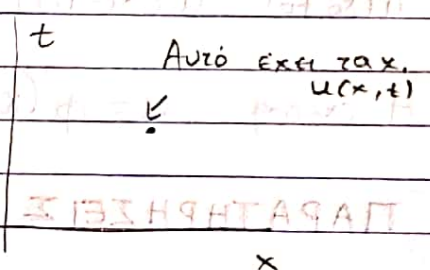 t
Αυτό έχει ταχ.
u(x,t)
ΠΑΡΑΤΗΡΗΣΕΙΣ
x